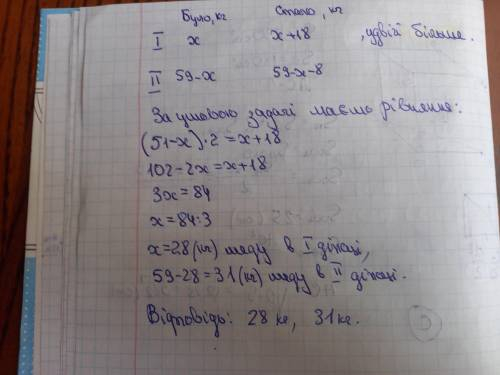 Було, кг Стало, кг
I x x+18, удвічі більше.
II 59-x 59-x-8
За умовою задачі маємо рівняння:
(51-x)·2=x+18
102-2x=x+18
3x=84
x=84:3
x=28(кг) меду в I діжці,
59-28=31(кг) меду в II діжці.
Відповідь: 28 кг, 31 кг.